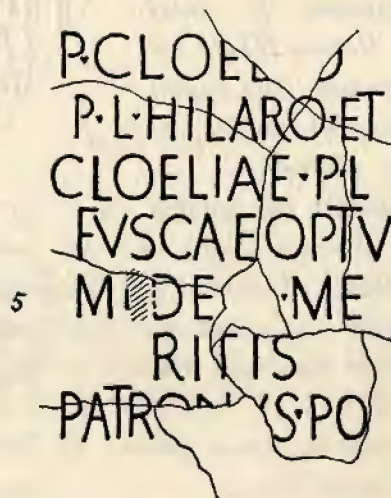 P·CLOELIO
P·L·HILARO·ET
CLOELIAE·P·L
FVSCAE OPTV
5 MI DE ·ME
RITIS
PATRONVS·PO